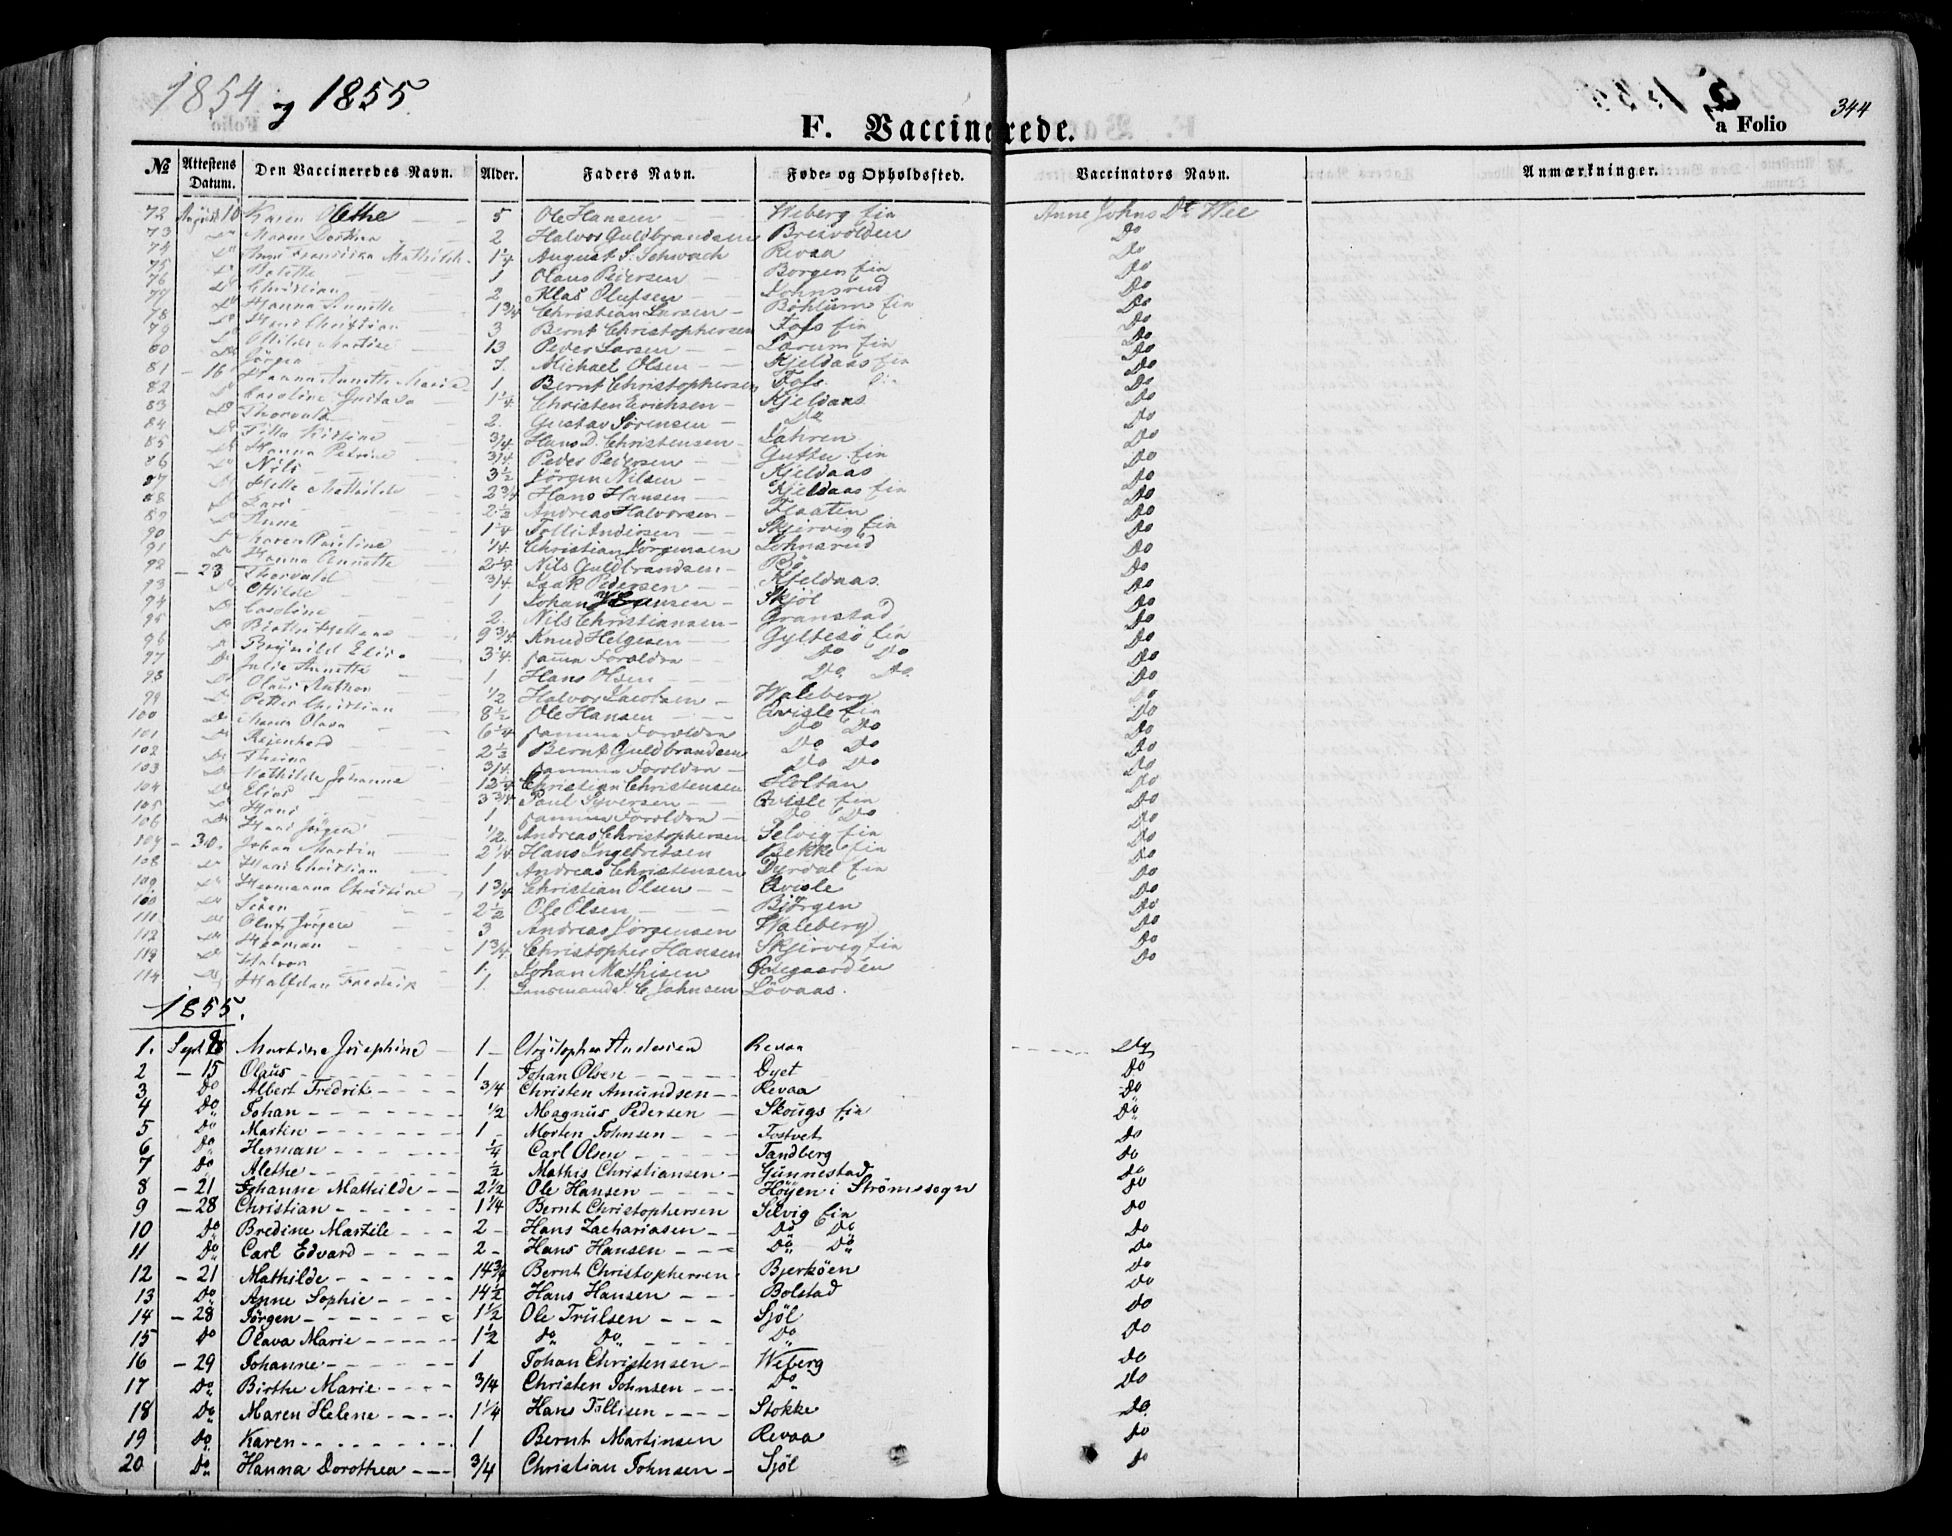 1854 og 1855.
F. Vaccinerede.
a Folio 344
No Attestens Datum. Den Vaccineredes Navn. Alder. Faders Navn. Føde- og Opholdssted. Vaccinators Navn. Anmærkninger.
72 August 10 Karen Olethe 5 Ole Hansen Weberg Ein Anne Johns Dt Wee
73 Do Maren 2 Halvor Guldbrandsen Bresvolden Do
74 Do Mathilde 1 1/4 August S. Schwach Revaa Do
75 Do 1 Olaus Pedersen Borgen Ein Do
76 Do Christian 2 Klas Olufsen Johnsrud Do
77 Do Hanna Annette 1 3/4 Christian Larsen Böhlum Ein Do
78 Do Hans Christian 3 Bernt Christophersen Fofs Ein Do
79 Do Otilde 13 Peder Larsen Larum Ein Do
80 Do Jörgen 7 Michael Olsen Kjeldaas Ein Do
81 - 16 Hanna Annette Marie 1 Bernt Christophersen Fofs Ein Do
82 Do Caroline Gustava 1 1/4 Christen Erichsen Kjeldaas Do
83 Do Thorvald 2 Gustav Sörensen Do Do
84 Do 3/4 Hans D. Christensen Jahren Do
85 Do Hanna Petrine 3/4 Peder Pedersen Guttu Ein Do
86 Do Nils 3 1/2 Jörgen Nilsen Kjeldaas Do
87 Do Mathilde 2 3/4 Hans Hansen Kjeldaas Ein Do
88 Do Lars 2 1/2 Andreas Halvorsen Flaaten Do
89 Do Anne 1 1/4 Tolli Andersen Skjervig Ein Do
90 Do Karen Pauline 1/4 Christian Jörgensen Johnsrud Do
91 Do Hanna Annette 2 1/4 Nils Guldbrandsen Bö Do
92 - 23 Thorvald 3/4 Isak Pedersen Kjeldaas Do
93 Do Otilde 1 Johan Hansen Skjöl Do
94 Do Caroline 2 Nils Christiansen Granstad Do
95 Do 9 3/4 Knud Helgesen Gyltesö Ein Do
96 Do 3 1/4 samme Foroldra Do Do Do
97 Do Julie Annette 1 Hans Olsen Do Do Do
98 Do Olaus Anthon 1/2 Halvor Jacobsen Waleberg Do
99 Do Petter Christian 8 1/2 Ole Hansen Qvisle Ein Do
100 Do Maren Olava 6 1/4 samma Foroldra Do Do Do
101 Do Rejenhard 2 1/2 Bernt Guldbrandsen Do Do Do
102 Do 3/4 samma Foroldra Do Do Do
103 Do Mathilde Johanne 12 1/4 Christian Christensen Holtan Do
104 Do Elias 3 3/4 Paul Syversen Qvisle Ein Do
105 Do Hans 1 samma Foroldra Do Do Do
106 Do Hans Jörgen 1/2 Andreas Christophersen Selvig Ein Do
107 - 30. Johan Martin 2 1/4 Hans Ingebretsen Bekke Ein Do
108 Do Hans Christian 1 Andreas Christensen Dyrdal Ein Do
109 Do Hermanna Christine 1 3/4 Christian Olsen Qvisle Do
100 Do Sören 2 1/2 Ole Olsen Björgen Do
111 Do Oluf Jörgen 3 Andreas Jörgensen Waleberg Do
112 Do Herman 1 3/4 Christopher Hansen Skjervig Ein Do
113 Do Halvor 1. Johan Mathisen Do
114 Do Halfdan Fredrik 1. Lensmand C. Johnsen Lövaas.
1855.
1. Sept 8 Martine Josephine 1 Christopher Andersen Revaa Do
2 - 15 Olaus 1 Johan Olsen Dyet Do
3 Do Albert Fredrik 3/4 Christen Amundsen Revaa Do
4 Do Johan 1/2 Magnus Pedersen Skougs Ein Do
5 Do Martin 1 Morten Johnsen Tostvet Do
6 Do Herman 1/4 Carl Olsen Tandberg Do
7 Do Alethe 1/2 Mathis Christiansen Gunnestad Do
8 - 21 Johanne Mathilde 2 1/2 Ole Hansen Höyen i Strömssogn Do
9 - 28 Christian 1 1/4 Bernt Christophersen Selvig Ein Do
10 Do Bredine Martile 2 Hans Zachariasen Do Do Do
11 Do Carl Edvard 2 Hans Hansen Do Do Do
12 - 21 Mathilde 14 3/4 Bernt Christophersen Bjerköen Do
13 Do Anne Sophie 14 1/2 Hans Hansen Bolstad Do
14 - 28 Jörgen 1 1/2 Ole Trulsen Sjöl Do
15 Do Olava Marie 1 1/2 Do Do Do Do
16 - 29 Johanne 1 Johan Christensen Weberg Do
17 Do Birthe Marie 3/4 Christen Johnsen Do Do
18 Do Maren Helene 1 1/4 Hans Tollisen Stokke Do
19 Do Karen 1 Bernt Martinsen Revaa Do
20 Do Hanna Dorothea 3/4 Christian Johnsen Sjöl Do